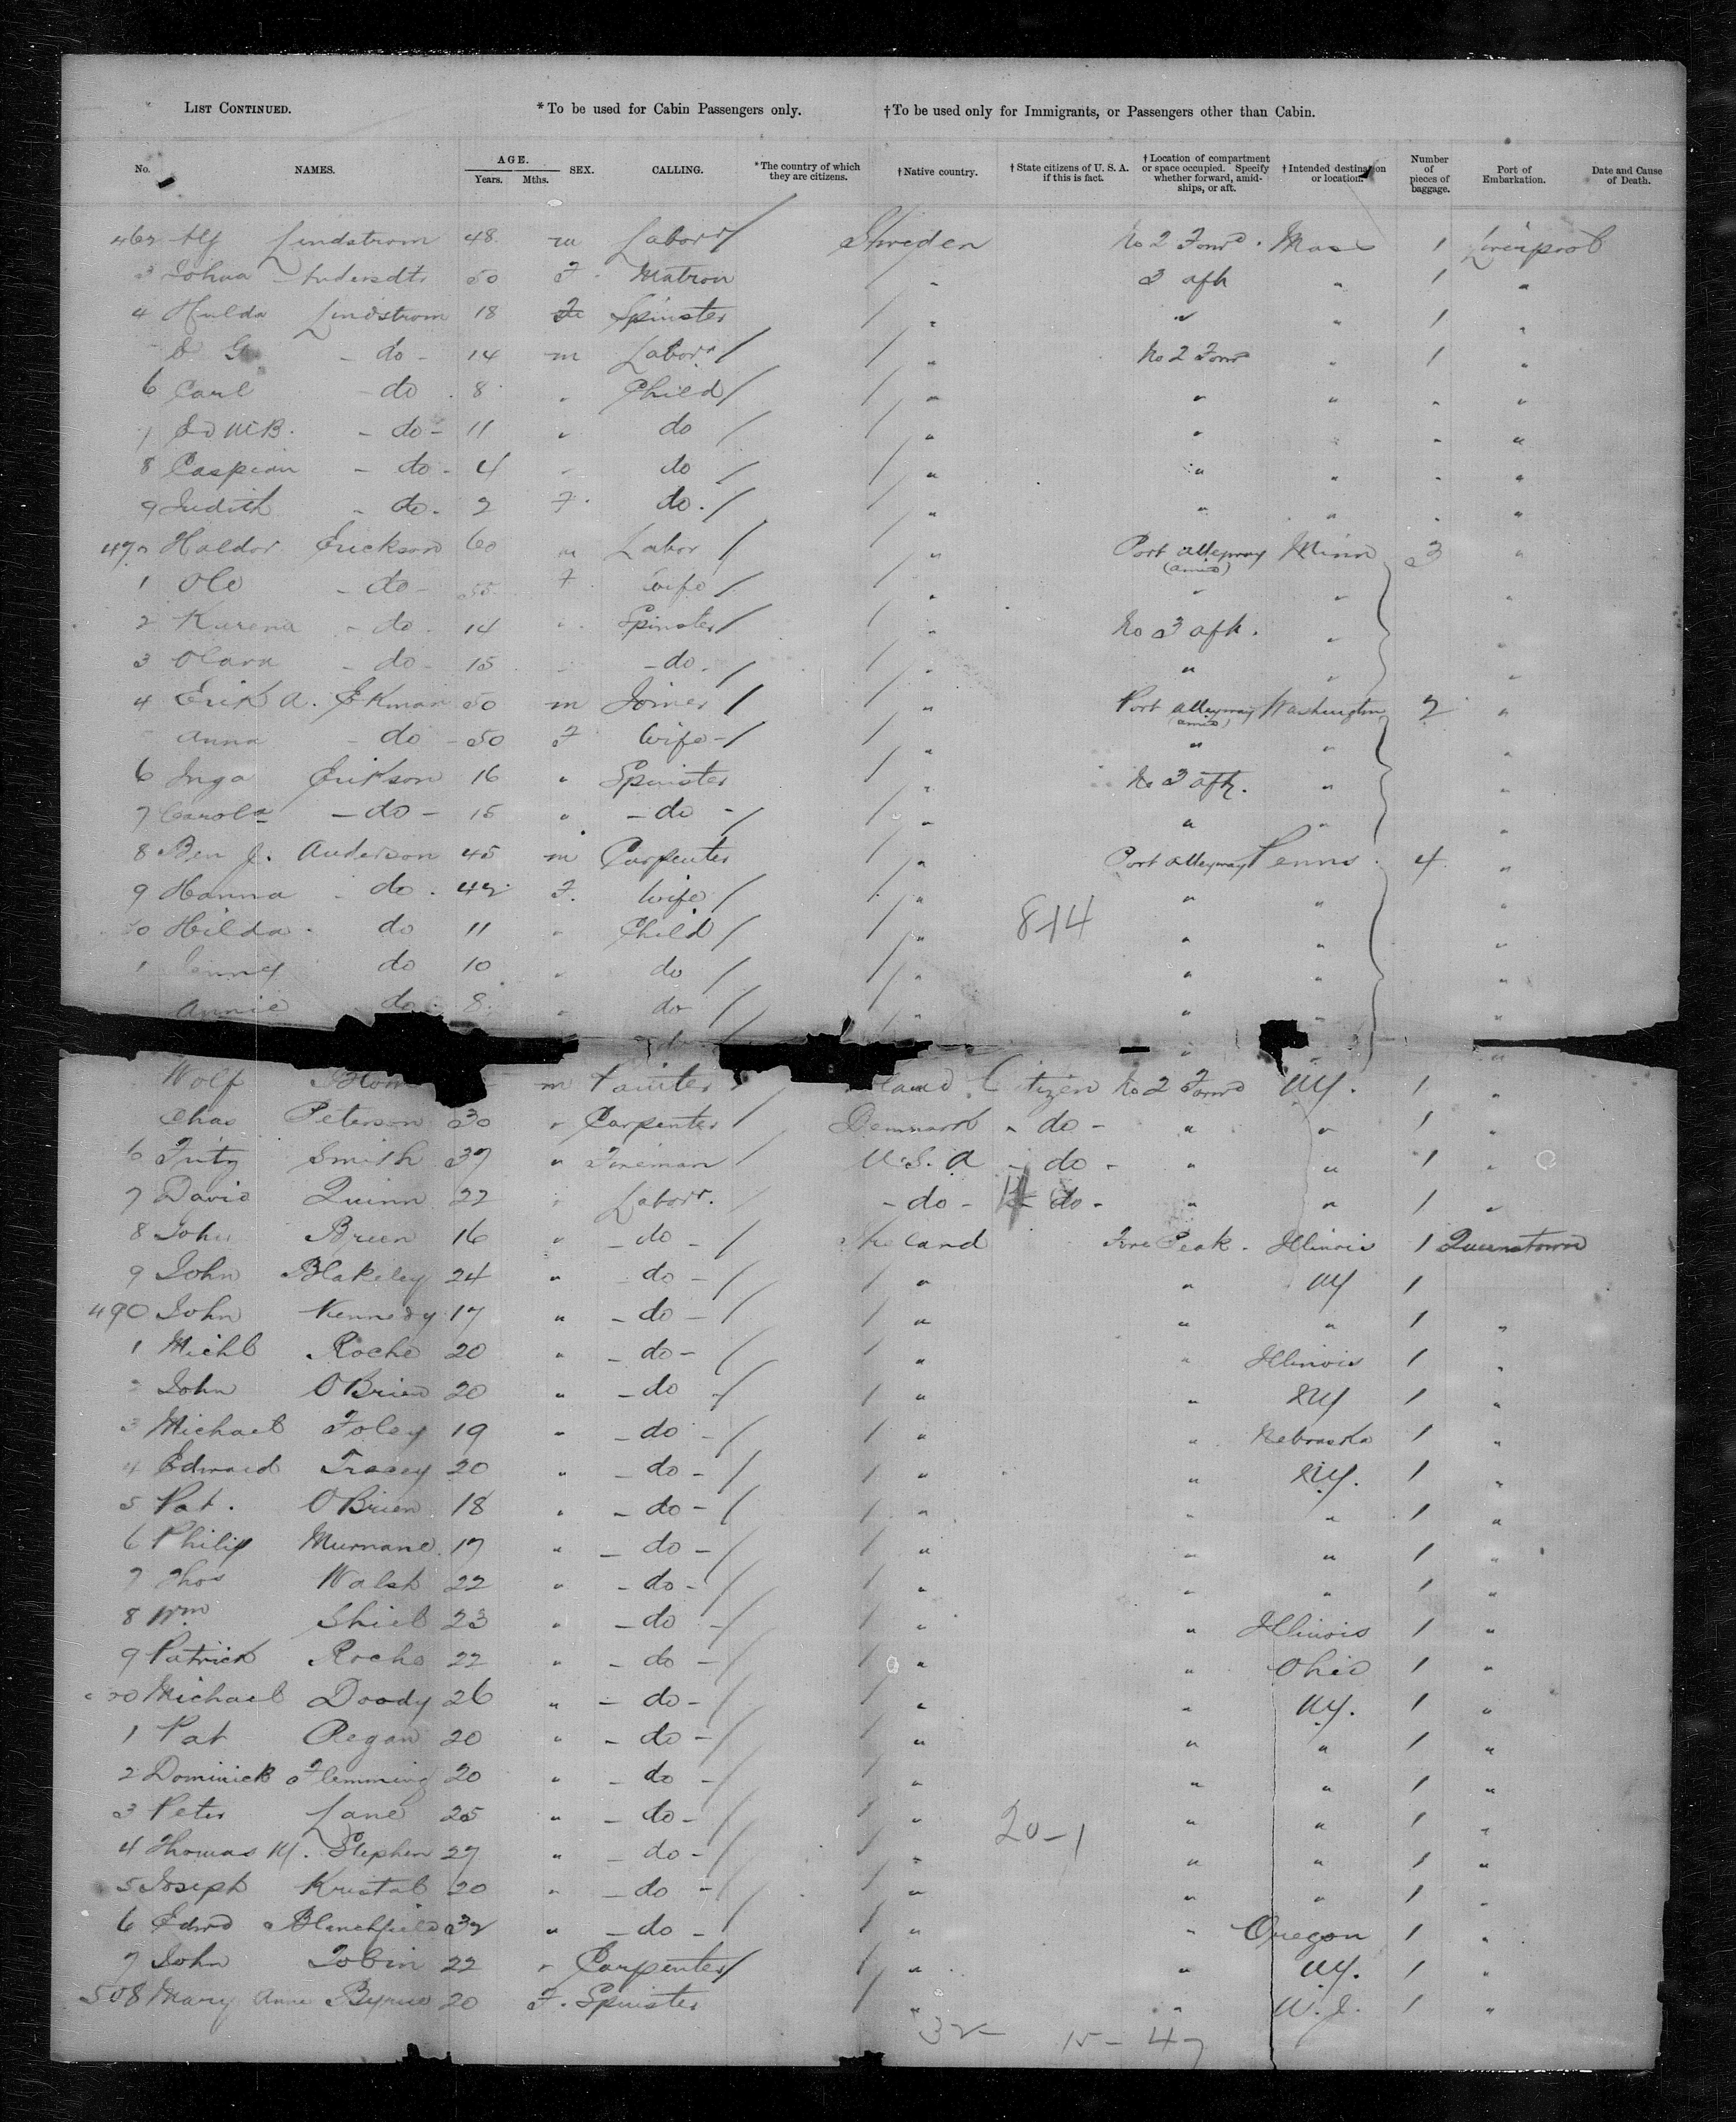 LIST CONTINUED. *To be used for Cabin Passengers only. †To be used only for Immigrants, or Passengers other than Cabin.
No. NAMES. AGE. Years. Mths. SEX. CALLING. *The country of which they are citizens. †Native country. †State citizens of U. S. A. if this is fact. †Location of compartment or space occupied. Specify whether forward, amidships, or aft. †Intended destination or location. Number of pieces of baggage. Port of Embarkation. Date and Cause of Death.
462 Lindstrom 48 m Laborr / Sweden No 2 Forwd. Mass 1 Liverpool
3 Johua Andersdtr 50 F. Matron / " 3 aft " 1 "
4 Hulda Lindstrom 18 F Spinster / " " " 1 "
G - do - 14 m Laborr / / " No 2 Forwd " 1 "
6 Carl - do 8 " Child / / " " " " "
- do - 11 " do / / " " " " "
8 Caspian - do - 4 " do / / " " " " "
9 Judith - do - 2 F. do. / / " " " " "
470 Haldor Erickson 60 m Labor / / " Port alleyway (amid) Minn 3 "
1 Ole - do - 55 F Wife / / " " " "
2 Karena - do - 14 " Spinster / / " No 3 aft. " "
3 Olava - do - 15 " - do. / / " " " "
4 Erik A. Ekman 50 m Joiner / / " Port alleyway (amid) Washington 2 "
Anna - do - 50 F Wife - / / " " " "
6 Inga Erikson 16 " Spinster / " No 3 aft. " "
7 Carola - do - 15 " - do - / / " " " "
8 Ben J. Anderson 45 m Carpenter / " Port alleyway Penns. 4 "
9 Hanna - do - 42 F. Wife / / " " " "
0 Hilda do 11 " Child / / " 814 " " "
1 Jenny do 10 " do / / " " " "
Annie do 8 " do / / " " " "
Wolf m Painter Citizen No 2 Forwd NY. 1 "
Chas Peterson 30 " Carpenter / Denmark " do - " " 1 "
6 Fritz Smith 37 " Fireman / U.S.A - do - " " 1 "
7 David Quinn 22 " Laborr. / - do - - do - " " 1 "
8 John Breen 16 " - do - / Ireland Fore Peak. Illinois 1 Queenstown
9 John Blakeley 24 " do - / / " " NY 1
490 John Kennedy 17 " - do - / / " " " 1 "
1 Michl Roche 20 " - do - / / " " Illinois 1 "
2 John OBrien 20 " - do - / / " " NY 1 "
3 Michael Foley 19 " - do - / / " " Nebraska 1 "
4 Edward Tracey 20 " - do - / / " " NY. 1 "
5 Pat. OBrien 18 " - do - / / " " " 1 "
6 Philip Murnane 17 " - do - / / " " " 1 "
7 Thos Walsh 22 " - do - / / " " " 1 "
8 Wm Shiel 23 " - do - / / " " Illinois 1 "
9 Patrick Roche 22 " - do - / / " " Ohio 1 "
Michael Doody 26 " - do - / / " " NY. 1 "
1 Pat Regan 20 " - do - / / " " " 1 "
2 Dominick Flemming 20 " - do - / / " " " 1 "
3 Peter Lane 25 " - do - / / " 20 - 1 " " 1 "
4 Thomas M. Stephen 27 " - do - / / " " " 1 "
5 Joseph Kristal 20 " - do - / / " " " 1 "
6 Edwd Blanchfield 32 " - do - / / " " Oregon 1 "
7 John Tobin 22 " Carpenter / / " " NY. 1 "
508 Mary Anne Byrne 20 F. Spinster / " " N.J. 1 "
32 - 15 - 47